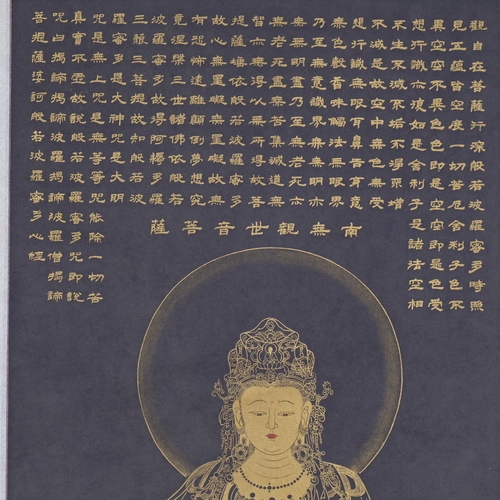 觀自在菩薩行深般若波羅蜜多時照
見五蘊皆空度一切苦厄舍利子色不
異空空不異色色即是空空即是色受
想行識亦復如是舍利子是諸法空相
不生不滅不垢不淨不增
不減是故空中無色無受
想行識無眼耳鼻舌身意
無色聲香味觸法無眼界
乃至無意識界無無明亦
無無明盡乃至無老死亦
無老死盡無苦集滅道無
智亦無得以無所得故菩
提薩埵依般若波羅蜜多
故心無罣礙無罣礙故無
有恐怖遠離顛倒夢想究
竟涅槃三世諸佛依般若
波羅蜜多故得阿耨多羅
三藐三菩提故知般若波
羅蜜多是大神咒是大明
咒是無上咒是無等等咒能除一切苦
真實不虛故說般若波羅蜜多咒即說
咒曰揭諦揭諦波羅揭諦波羅僧揭諦
菩提薩婆訶般若波羅蜜多心經
南無觀世音菩薩